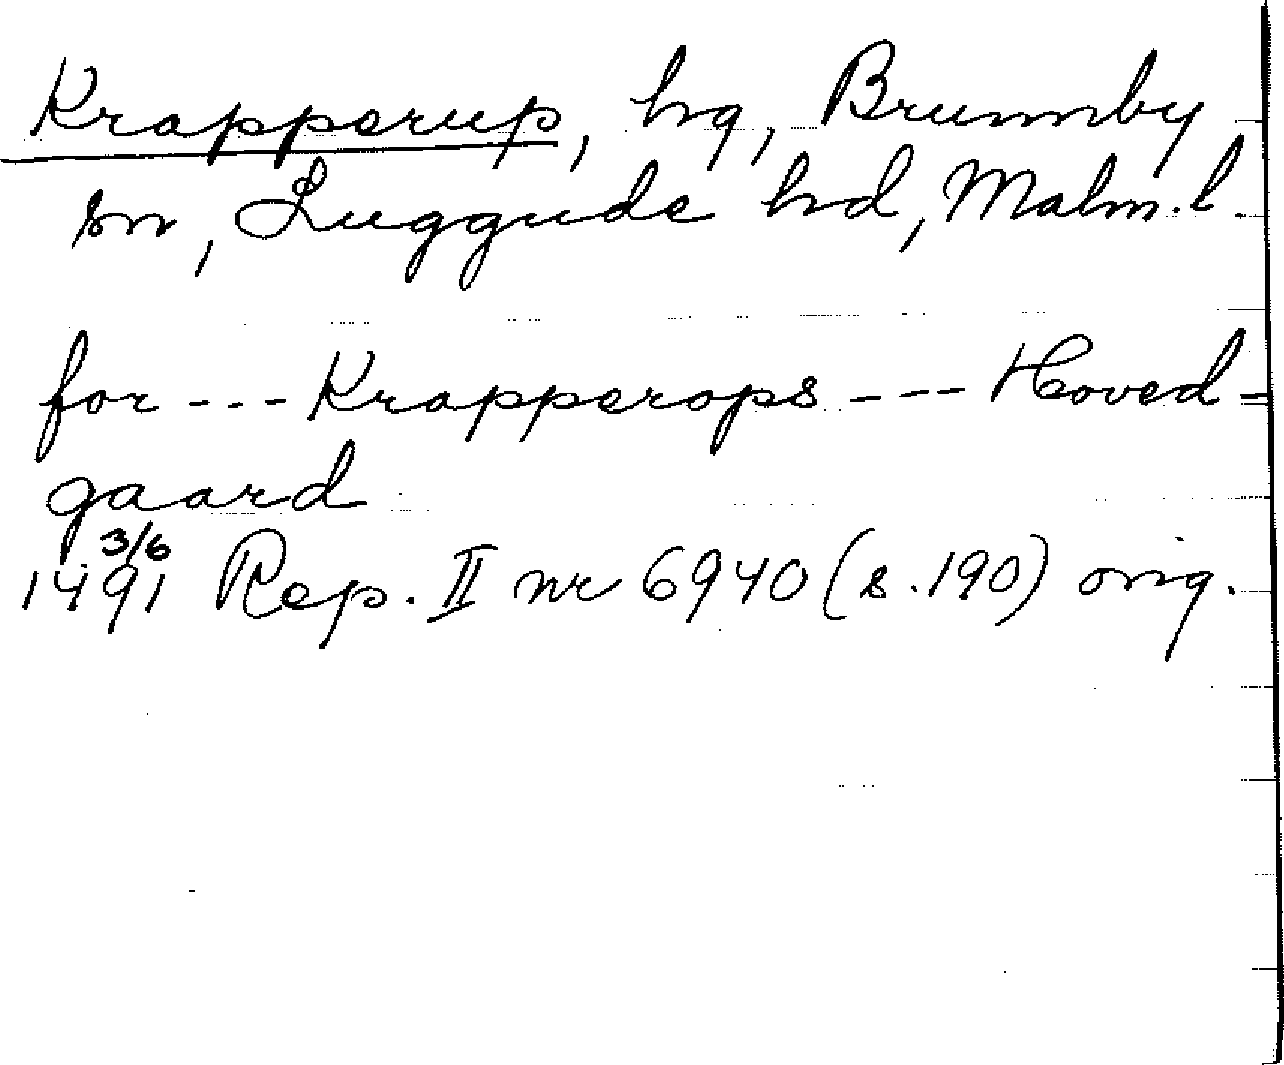 Krapperup, hg, Brunnby
sn, Luggude hd, Malm.l.
for --- Krapperops --- Hoved-
gaard
3/6
1491 Rep. II nr 6940 (s.190) orig.